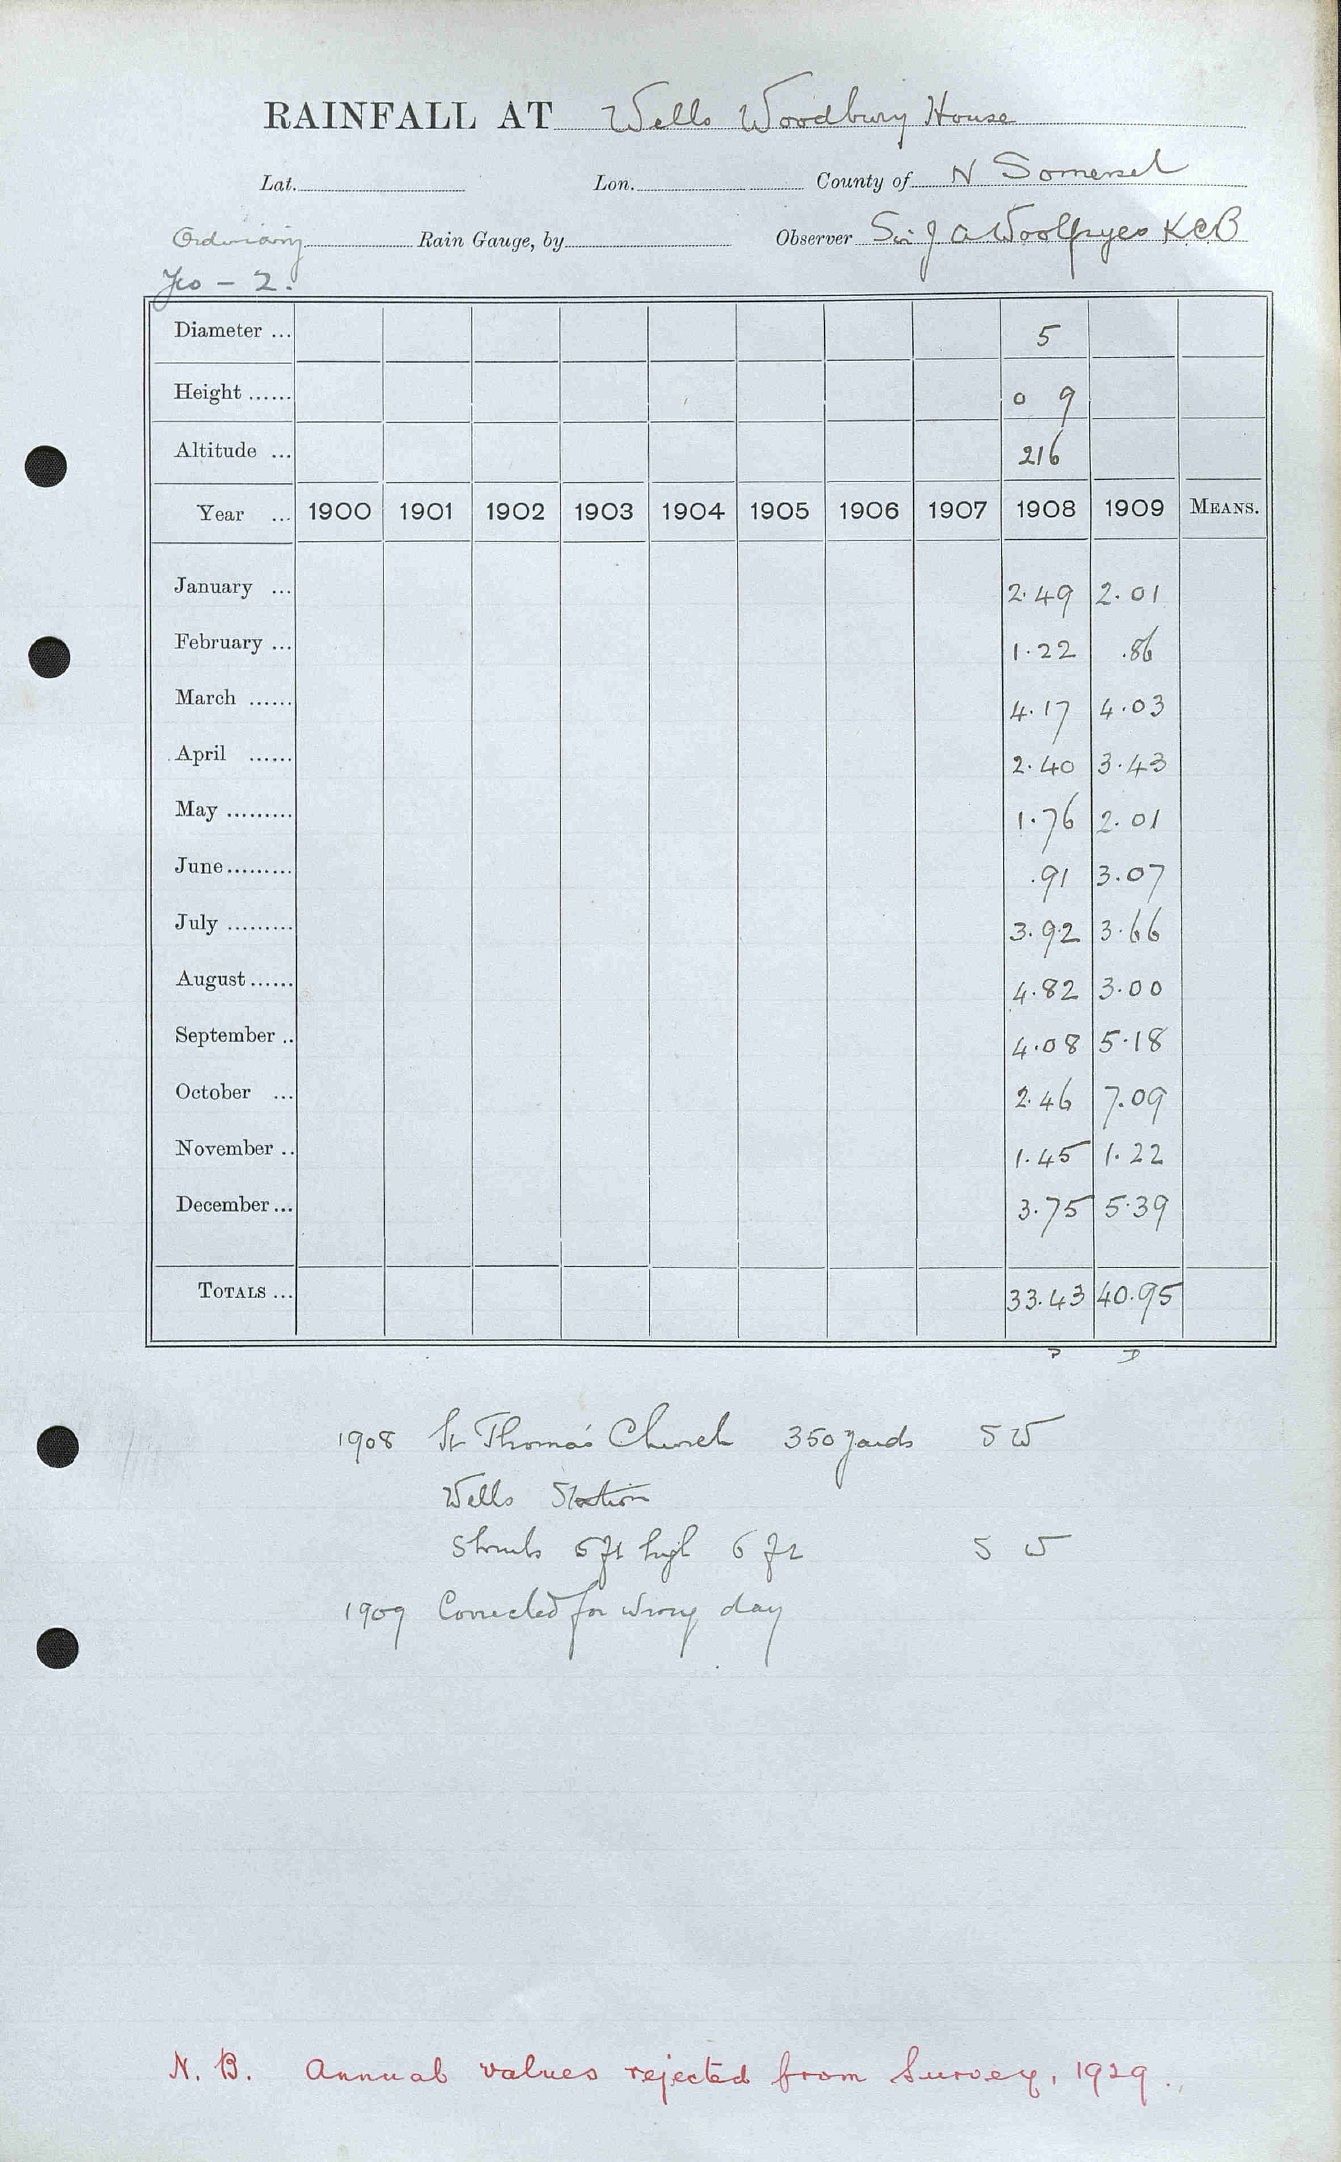 RAINFALL AT Wells Woodbury House
Lat. Lon. County of N Somerset
Ordinary Rain Gauge, by Observer Sir J A Woolfryes KCB
- 2.
Diameter ... 5
Height ...... 0 9
Altitude ... 216
Year ... 1900 1901 1902 1903 1904 1905 1906 1907 1908 1909 MEANS.
January ... 2.49 2.01
February ... 1.22 .86
March ...... 4.17 4.03
April ...... 2.40 3.43
May ......... 1.76 2.01
June ......... .91 3.07
July ......... 3.92 3.66
August ...... 4.82 3.00
September .. 4.08 5.18
October ... 2.46 7.09
November .. 1.45 1.22
December ... 3.75 5.39
TOTALS ... 33.43 40.95
1908 St Thomas' Church 350 yards SW
Wells Station
Shrubs 5 ft high 6 ft SW
1909 Corrected for wrong day
N. B. Annual values rejected from Survey, 1929.